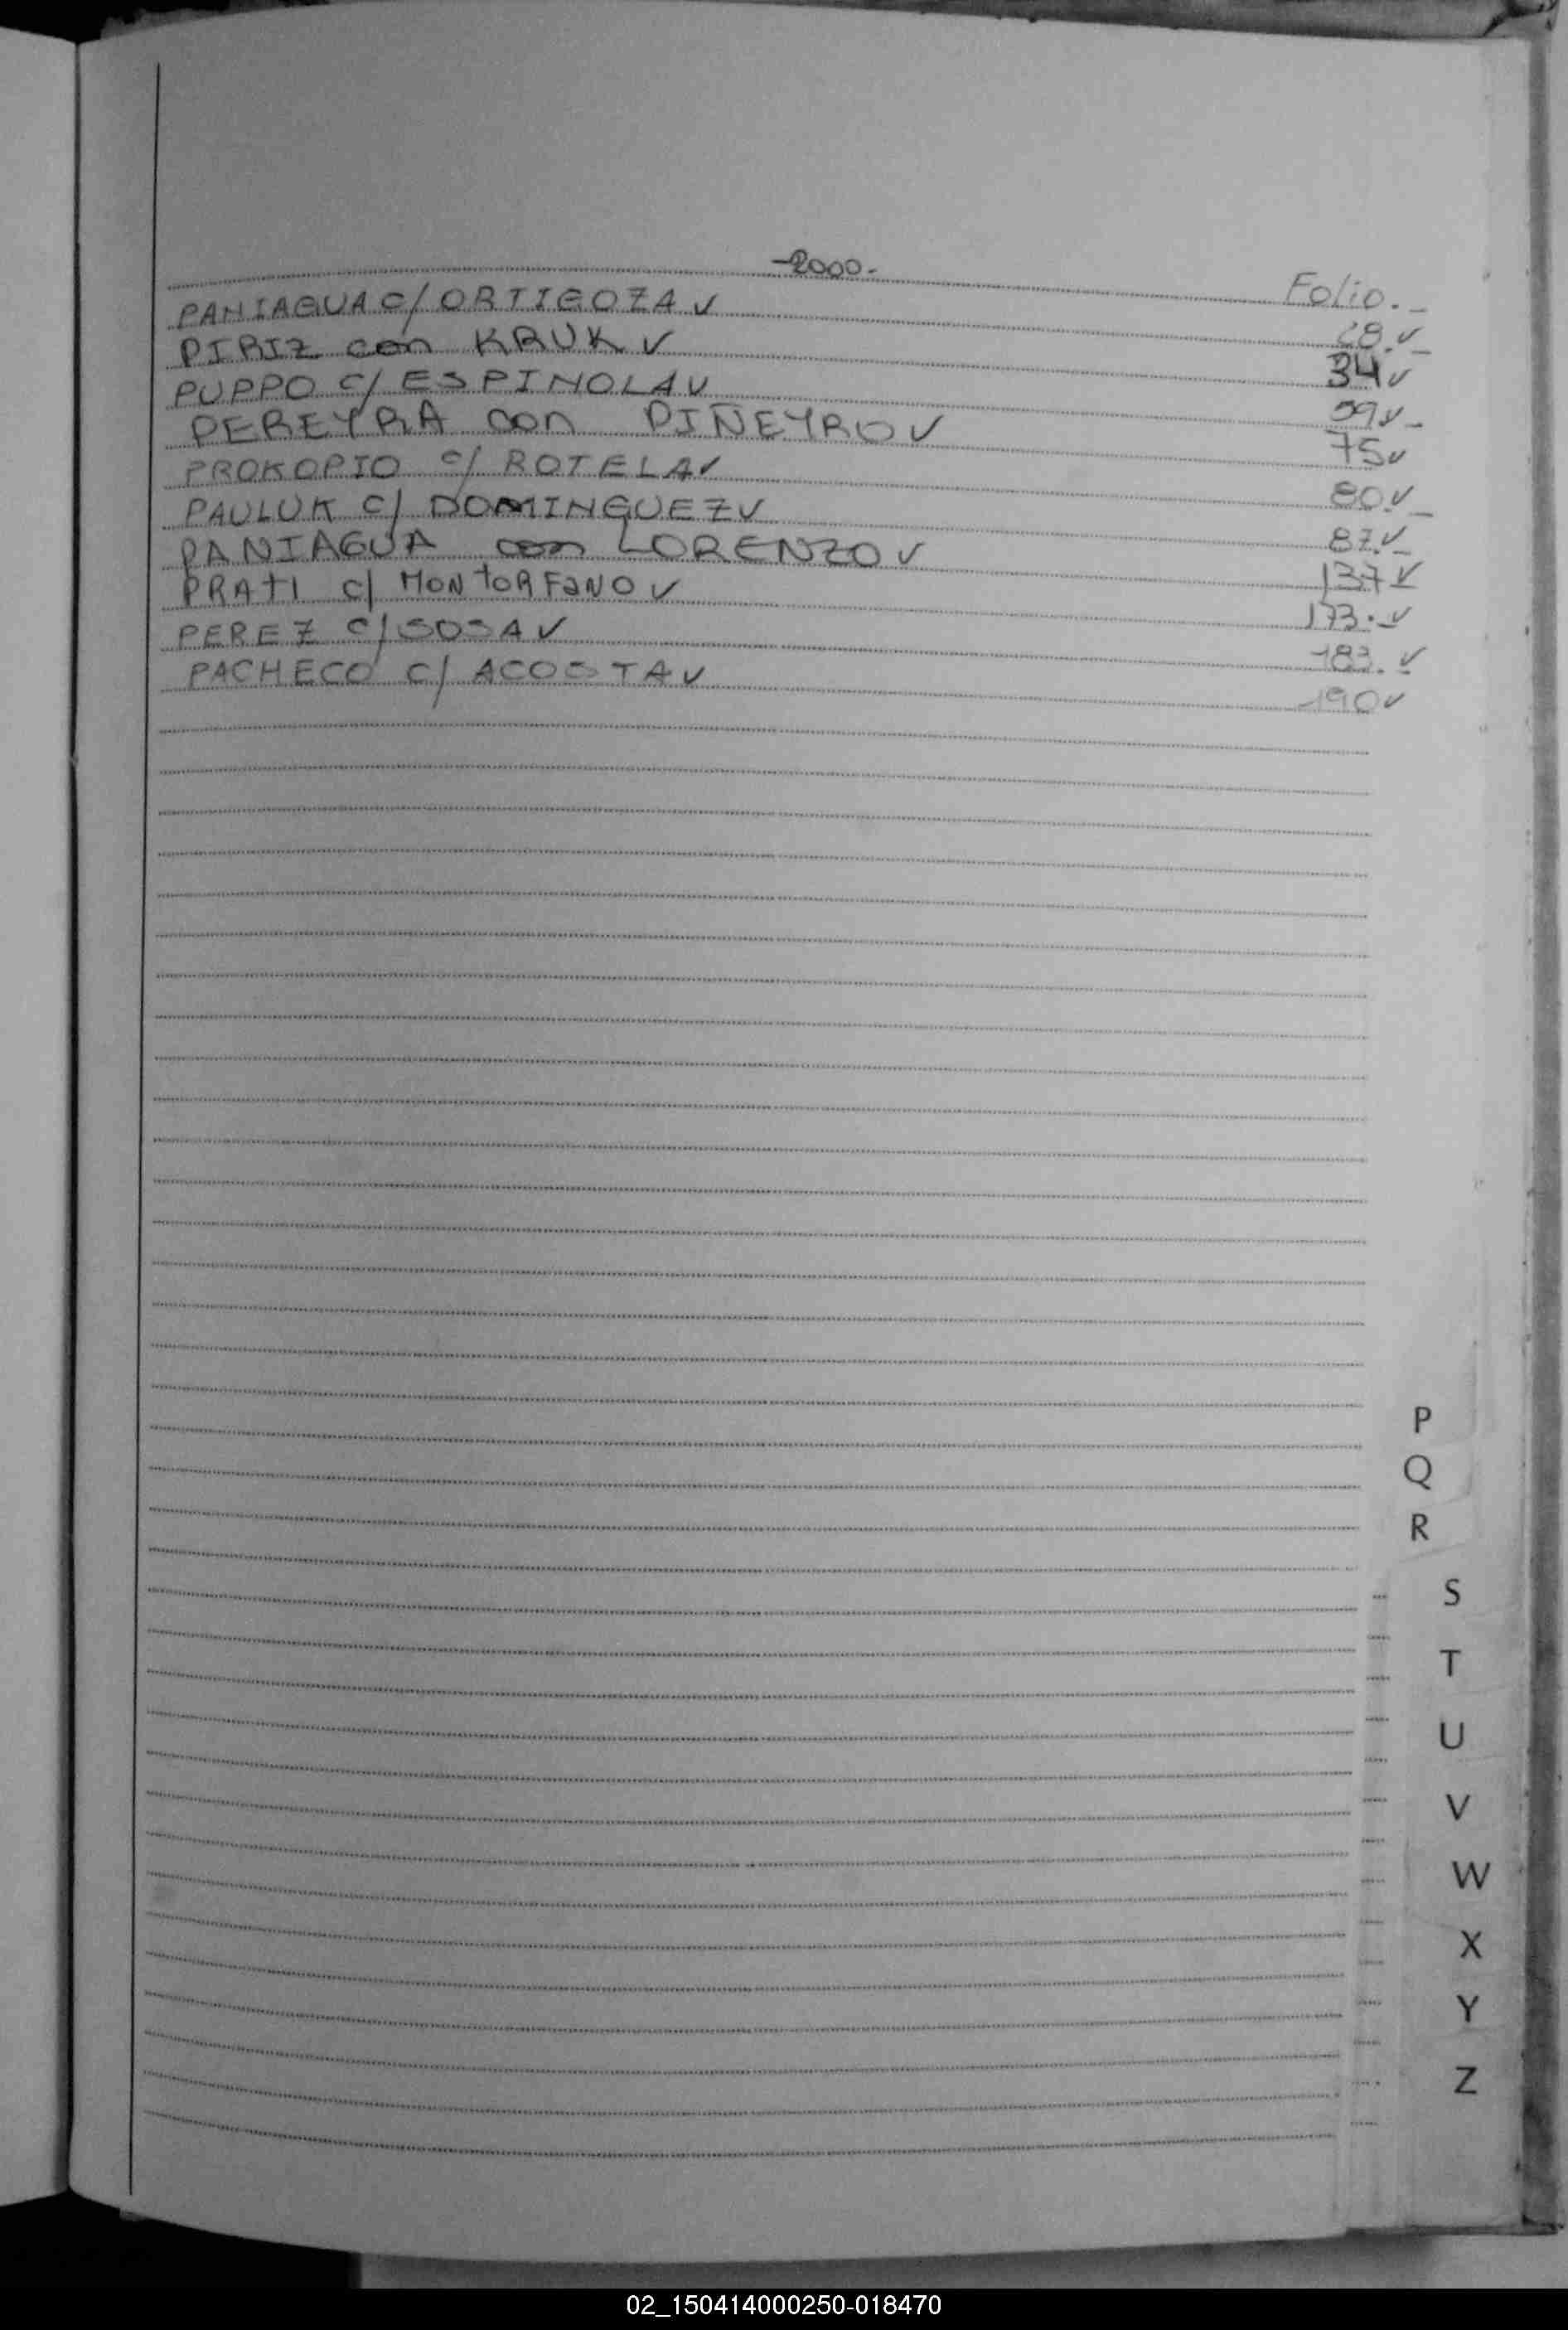 -2000-
Folio.-
PANIAGUA C/ ORTIGOZA ✓ 28.✓-
PIRIZ con KRUK ✓ 34 ✓
PUPPO C/ ESPINOLA ✓ 59 ✓-
PEREYRA con PIÑEYRO ✓ 75 ✓
PROKOPIO C/ ROTELA ✓ 80.✓-
PAULUK C/ DOMINGUEZ ✓ 87.✓-
PANIAGUA con LORENZO ✓ 137 ✓
PRATI C/ MONTORFANO ✓ 173.-✓
PEREZ C/ SOSA ✓ 183.✓
PACHECO C/ ACOSTA ✓ 190 ✓
P
Q
R
S
T
U
V
W
X
Y
Z
02_150414000250-018470